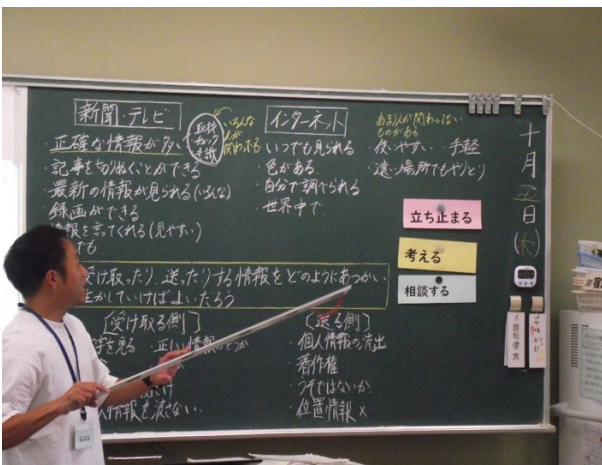 新聞・テレビ
正確な情報が多い
・記事を切りぬくことができる
・最新の情報が見られる(いろんな)
録画ができる
情報を言てくれる(見やすい)
でも
取材
チェック
いろんな
人が
関わってる
インターネット
・いつでも見られる
・色がある
・自分で調べられる
・世界中で
あまり人が関わってない
ものがある
・使いやすい 手軽
・遠い場所でもやりとり
十月五日(木)
立ち止まる
考える
相談する
受け取ったり、送ったりする情報をどのようにあつかい、
生かしていけばよいだろう
[受け取る側]
を見る ・正しい情報かどうか
人情報を流さない
[送る側]
・個人情報の流出
・著作権
・うそではないか
・位置情報 ×